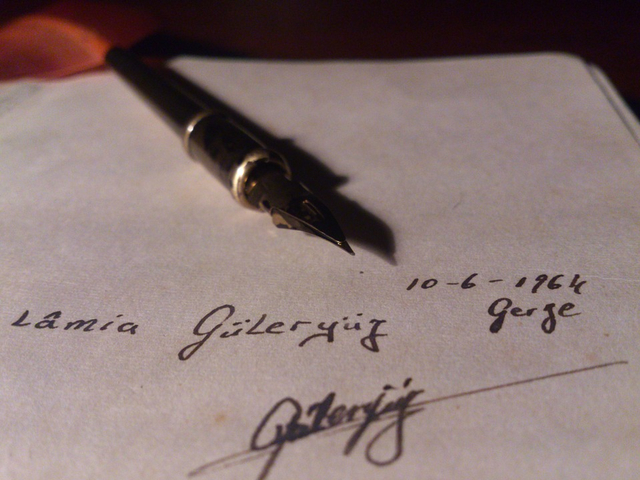 10-6-1964
Lâmia Güleryüz Gerge
Güleryüz